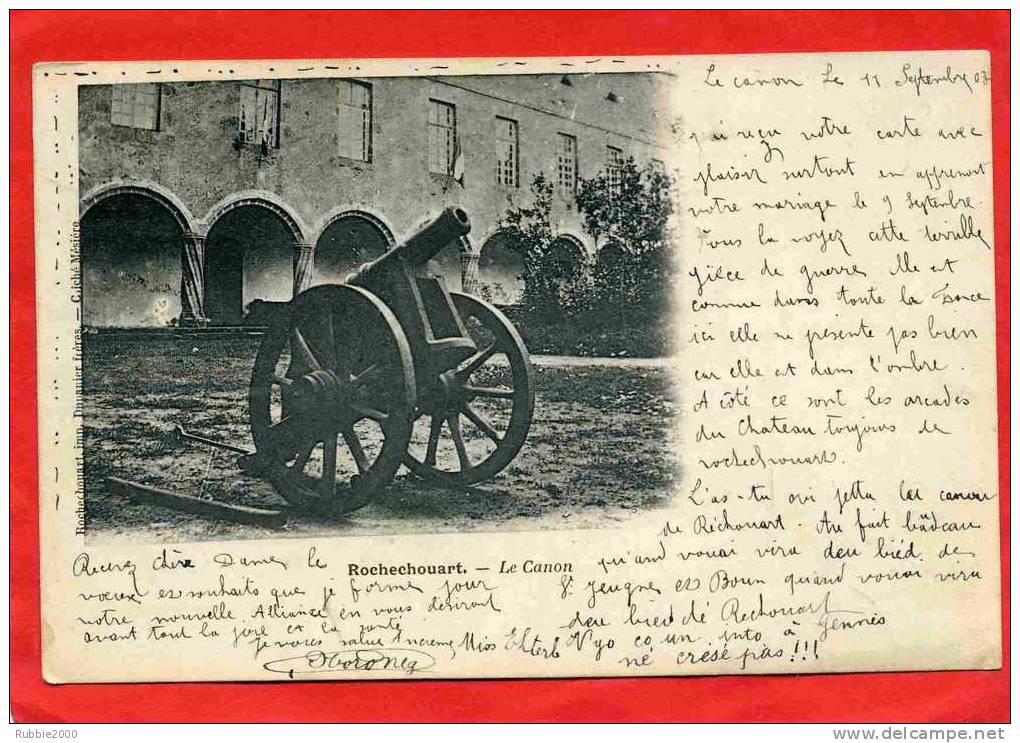 Le canon Le 11 Septembre 03
j'ai reçu votre carte avec
plaisir surtout en apprenant
votre mariage le 9 Septembre.
Vous la voyez cette terrible
pièce de guerre, Elle est
comme dans toute la France
ici elle ne présente pas bien
car elle est dans l'ombre.
A côté ce sont les arcades
du Chateau toujours de
rochechouart.
L'as-tu ovi jetta lou canou
de Réchouart. Au fait bádeau
qu'and vouai vira deu biéd de
St. Jeugne es Boun quand vouai vira
deu bied dé Rechouart
N'yo co un into à Gennés
né cresé pas!!!
Rochechouart. — Le Canon
Recevez Chère Dame, le
vœux et souhaits que je forme pour
votre nouvelle Alliance en vous désirant
avant tout la joie et la santé
je vous salue
Miss
Rochechouart, imp. Dupanier frères. — Cliché Mésière
Rubbie2000
www.delcampe.net